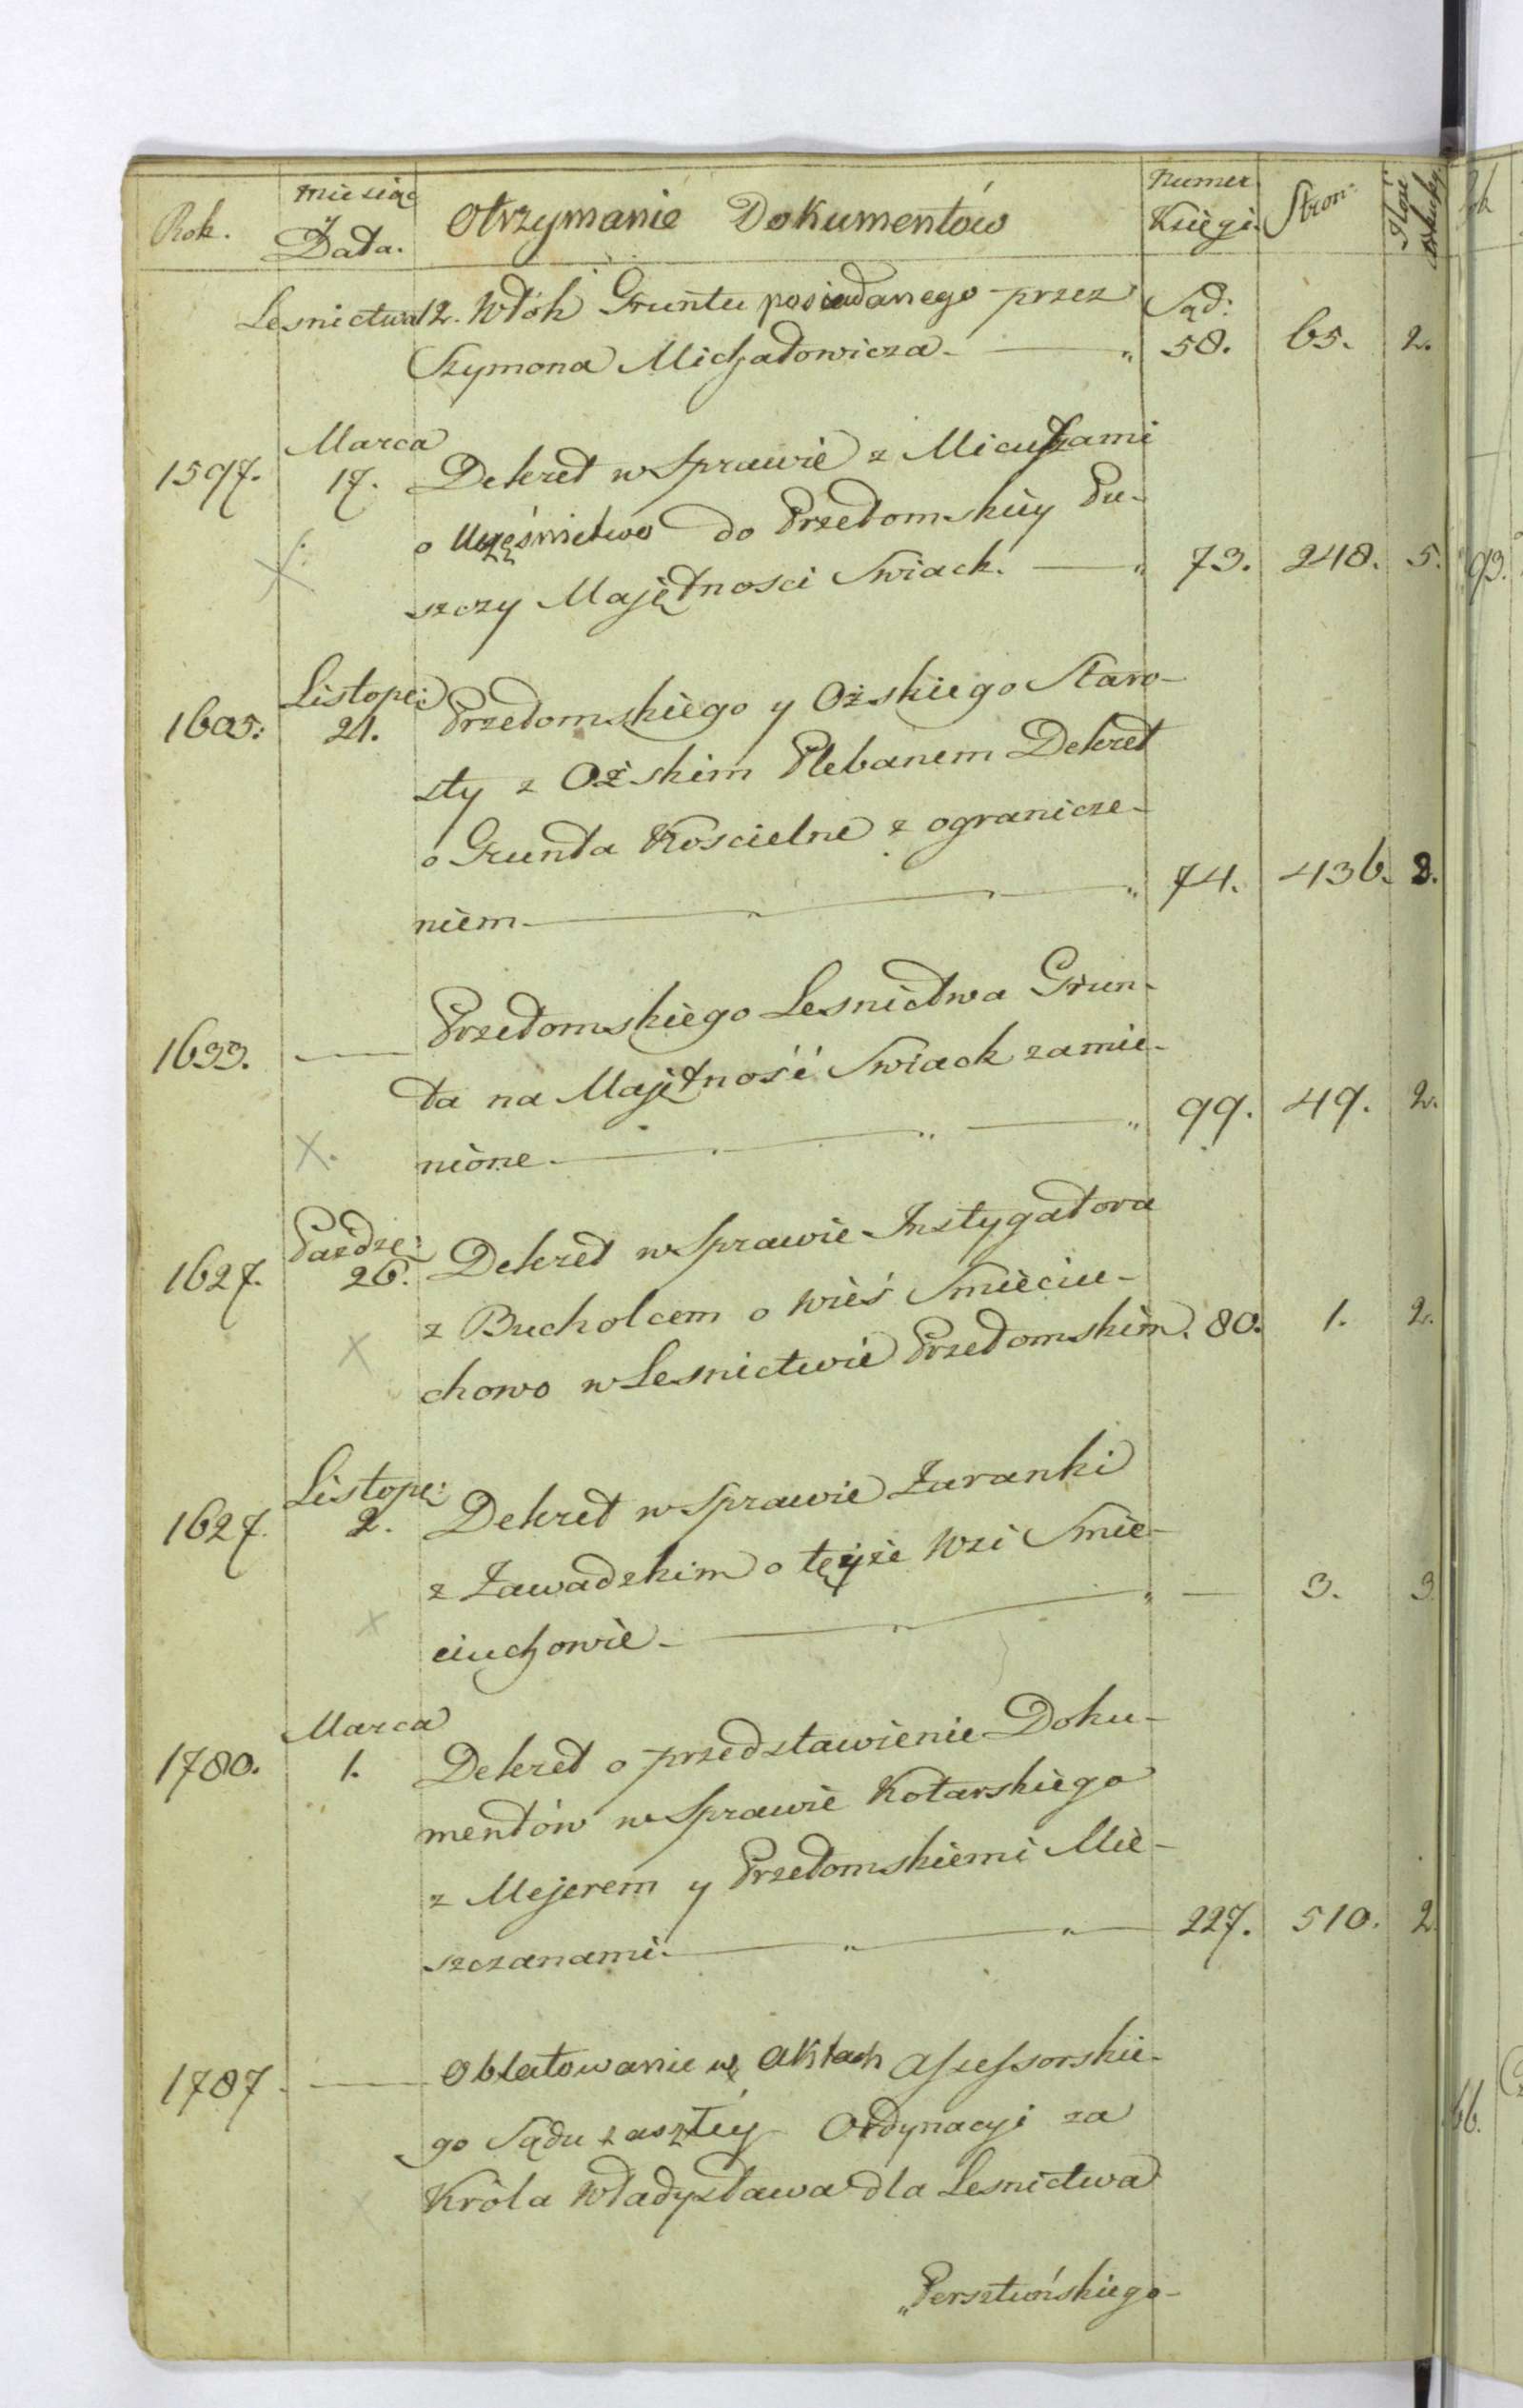 Rok. Miesiąc y Data. Otrzymanie Dokumentów Numer Księgi. Stron:
Lesnictwa 12. Włók Gruntu posiadanego przez Sąd:
Szymona Michałowicza. — „ 58. 65. 2.
Marca
1597. 17. Dekret w Sprawie z Micutami
o Uczęśnictwo do Przełomskiey Pu-
szczy Majętnosci Swiack. — „ 73. 248. 5.
Listope:
1605: 21. Przełomskiego y Ożskiego Staro-
sty z Ożskim Plebanem Dekret
o Grunta Koscielne z ogranicze-
niem — „ — „ 74. 436. 8.
1633. — Przełomskiego Lesnictwa Grun-
ta na Majętność Swiack zamie-
nione. — „ — „ 99. 49. 2.
Paźdze:
1627. 26. Dekret w Sprawie Instygatora
z Bucholcem o Wieś Smieciu-
chowo w Lesnictwie Przełomskim. 80. 1. 2.
Listope:
1627. 2. Dekret w Sprawie Żuranki
z Zawadzkim o teyże Wsi Smie-
ciuchowie — „ — „ — 3. 3
Marca
1780. 1. Dekret o przedstawienie Doku-
mentów w Sprawie Kotarskiego
z Mejerem y Przełomskiemi Mie-
szczanami. — „ — „ — 227. 510. 2
1787 — Oblatowanie w Aktach Assessorskie-
go Sądu zaszłey Ordynacyi za
Króla Władysława dla Lesnictwa
„Persztuńskiego-